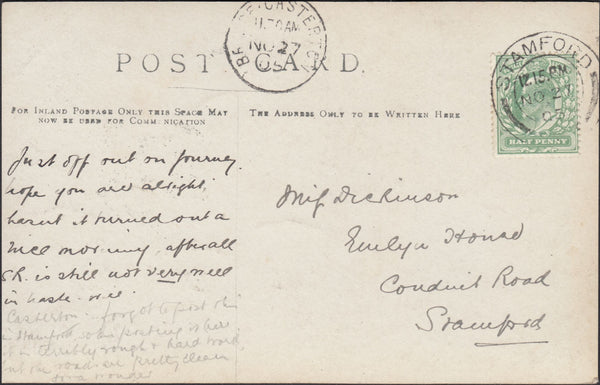 BRIDGE CASTERTON
NO 27
05
STAMFORD
12.15 PM
NO 27
POST CARD.
HALF PENNY
FOR INLAND POSTAGE ONLY THIS SPACE MAY
NOW BE USED FOR COMMUNICATION
THE ADDRESS ONLY TO BE WRITTEN HERE
Just off out on journey.
hope you are alright.
hasnt it turned out a
nice morning, after all
is still not very well
in haste.
Casterton forgot to post this
Stamford, so am posting it here
terribly rough & hard work,
but the roads are pretty clean
for a wonder
Miss Dickinson
Emlyn House
Conduit Road
Stamford